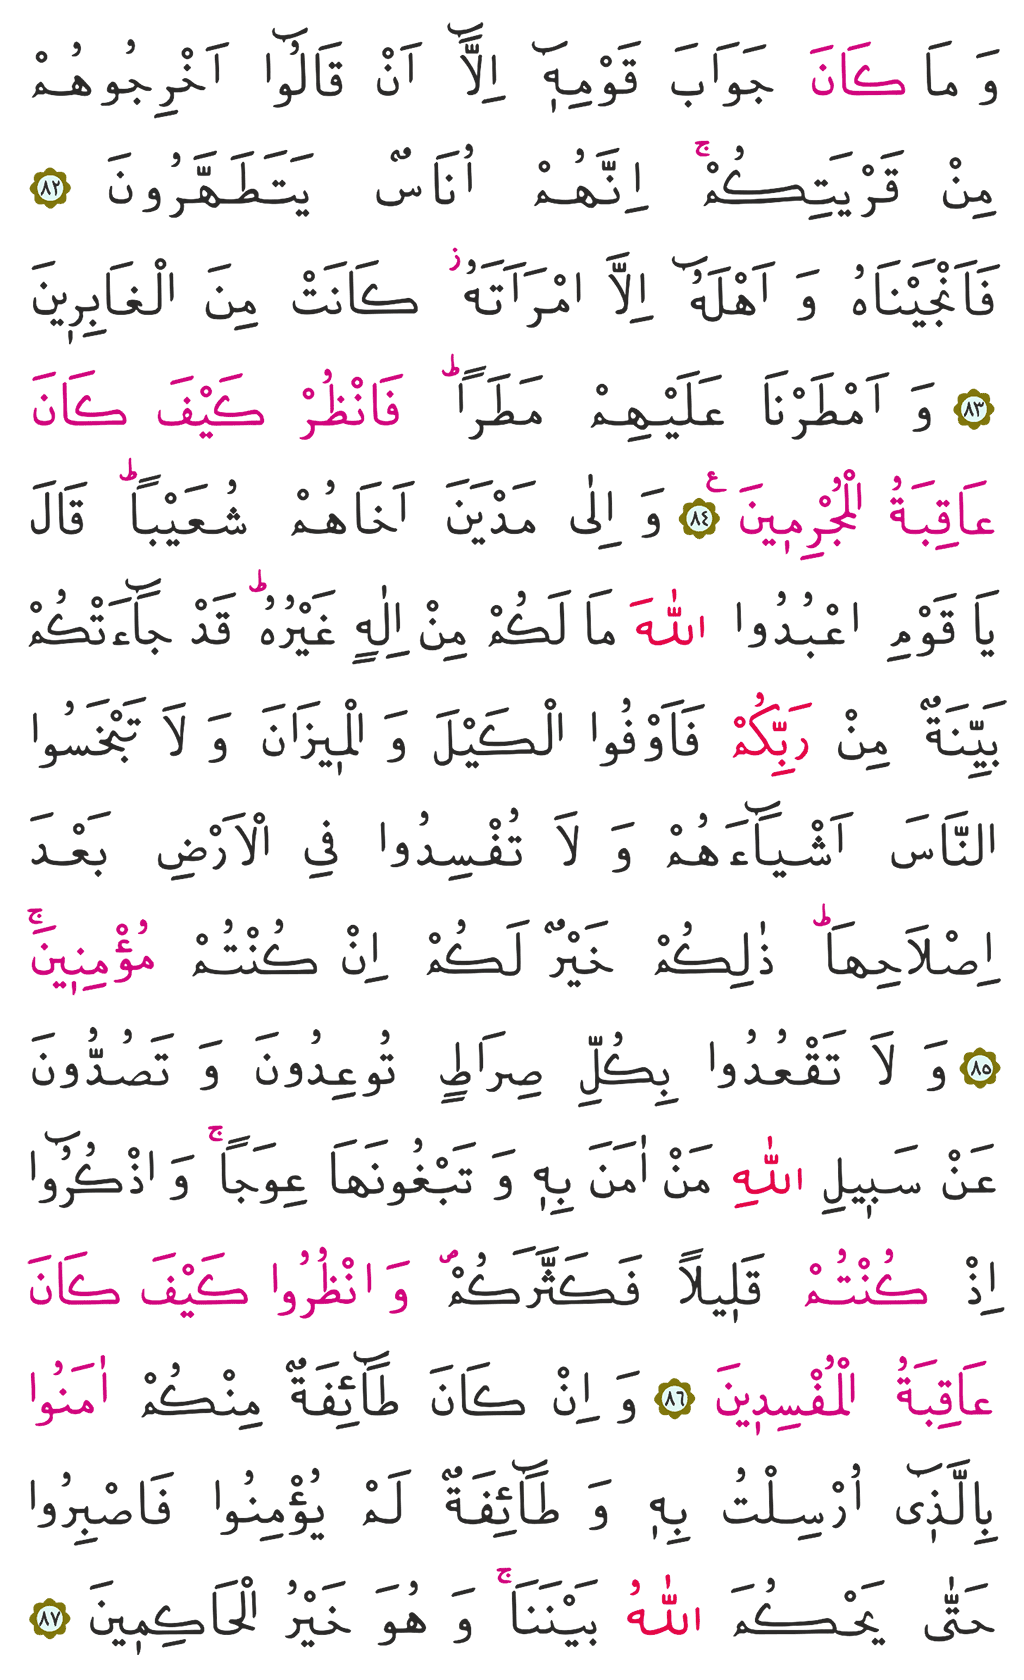 وَ مَا كَانَ جَوَابَ قَوْمِهٖٓ اِلَّٓا اَنْ قَالُٓوا اَخْرِجُوهُمْ
مِنْ قَرْيَتِكُمْۚ اِنَّهُمْ اُنَاسٌ يَتَطَهَّرُونَ ﴿٨٢﴾
فَاَنْجَيْنَاهُ وَ اَهْلَهُٓ اِلَّا امْرَاَتَهُؗ كَانَتْ مِنَ الْغَابِرٖينَ
﴿٨٣﴾ وَ اَمْطَرْنَا عَلَيْهِمْ مَطَرًاؕ فَانْظُرْ كَيْفَ كَانَ
عَاقِبَةُ الْمُجْرِمٖينَࣖ ﴿٨٤﴾ وَ اِلٰى مَدْيَنَ اَخَاهُمْ شُعَيْبًاؕ قَالَ
يَا قَوْمِ اعْبُدُوا اللّٰهَ مَا لَكُمْ مِنْ اِلٰهٍ غَيْرُهُؕ قَدْ جَٓاءَتْكُمْ
بَيِّنَةٌ مِنْ رَبِّكُمْ فَاَوْفُوا الْكَيْلَ وَ الْمٖيزَانَ وَ لَا تَبْخَسُوا
النَّاسَ اَشْيَٓاءَهُمْ وَ لَا تُفْسِدُوا فِي الْاَرْضِ بَعْدَ
اِصْلَاحِهَاؕ ذٰلِكُمْ خَيْرٌ لَكُمْ اِنْ كُنْتُمْ مُؤْمِنٖينَۚ
﴿٨٥﴾ وَ لَا تَقْعُدُوا بِكُلِّ صِرَاطٍ تُوعِدُونَ وَ تَصُدُّونَ
عَنْ سَبٖيلِ اللّٰهِ مَنْ اٰمَنَ بِهٖ وَ تَبْغُونَهَا عِوَجًاۚ وَ اذْكُرُٓوا
اِذْ كُنْتُمْ قَلٖيلًا فَكَثَّرَكُمْࣕ وَ انْظُرُوا كَيْفَ كَانَ
عَاقِبَةُ الْمُفْسِدٖينَ ﴿٨٦﴾ وَ اِنْ كَانَ طَٓائِفَةٌ مِنْكُمْ اٰمَنُوا
بِالَّذٖٓى اُرْسِلْتُ بِهٖ وَ طَٓائِفَةٌ لَمْ يُؤْمِنُوا فَاصْبِرُوا
حَتّٰى يَحْكُمَ اللّٰهُ بَيْنَنَاۚ وَ هُوَ خَيْرُ الْحَاكِمٖينَ ﴿٨٧﴾